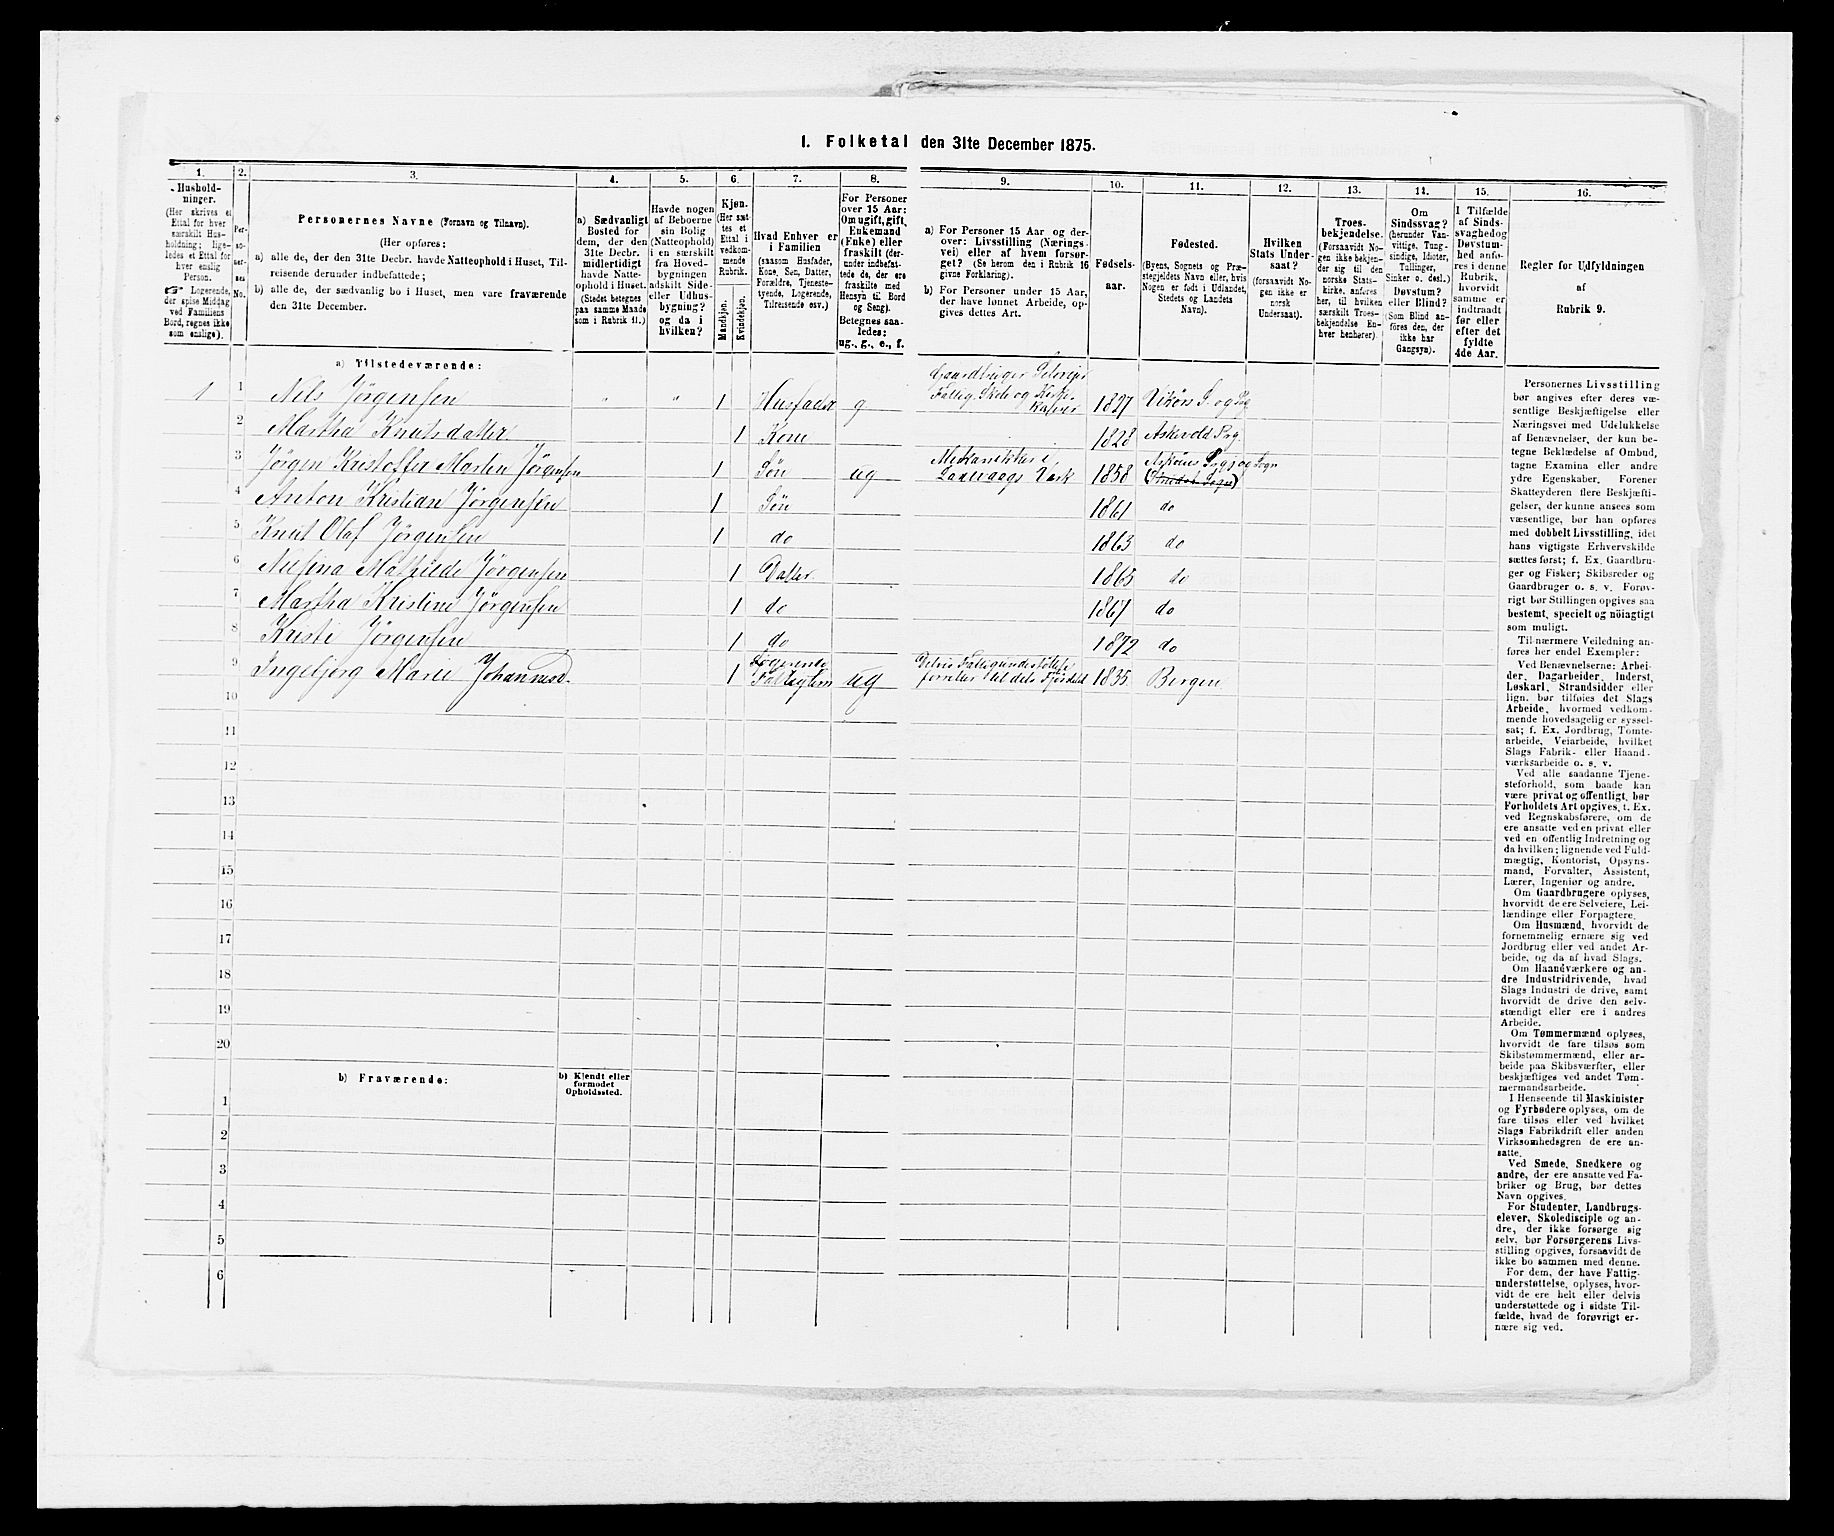 I. Folketal den 31te December 1875.
1.
Hushold-
ninger.
(Her skrives et
Ettal for hver
særskilt Hus-
holdning; lige-
ledes et Ettal for
hver enslig
Person.
☞ Logerende,
der spise Middag
ved Familiens
Bord, regnes ikke
som enslige).
2.
Per-
so-
ner-
nes
No.
3.
Personernes Navne (Fornavn og Tilnavn).
(Her opføres:
a) alle de, der den 31te Decbr. havde Natteophold i Huset, Til-
reisende derunder indbefattede;
b) alle de, der sædvanlig bo i Huset, men vare fraværende
den 31te December.
4.
a) Sædvanligt
Bosted for
dem, der den
31te Decbr.
midlertidigt
havde Natte-
ophold i Huset.
(Stedet betegnes
paa samme Maade
som i Rubrik 11.)
5.
Havde nogen
af Beboerne
sin Bolig
(Natteophold)
i en særskilt
fra Hoved-
bygningen
adskilt Side-
eller Udhus-
bygning?
og da i
hvilken?
6.
Kjøn.
(Her sæt-
tes et
Ettal i
vedkom-
mende
Rubrik.
Mandkjøn.
Kvindekjøn.
7.
Hvad Enhver er
i Familien
(saasom Husfader,
Kone, Søn, Datter,
Forældre, Tjeneste-
tyende, Logerende,
Tilreisende osv.)
8.
For Personer
over 15 Aar:
Om ugift, gift,
Enkemand
(Enke) eller
fraskilt (der-
under indbefat-
tede de, der ere
fraskilte med
Hensyn til Bord
og Seng).
Betegnes saa-
ledes:
ug., g., e., f.
9.
a) For Personer 15 Aar og der-
over: Livsstilling (Nærings-
vei) eller af hvem forsør-
get? (Se herom den i Rubrik 16
givne Forklaring).
b) For Personer under 15 Aar,
der have lønnet Arbeide, op-
gives dettes Art.
10.
Fødsels-
aar.
11.
Fødested.
(Byens, Sognets og Præ-
stegjeldets Navn eller, hvis
Nogen er født i Udlandet,
Stedets og Landets
Navn).
12.
Hvilken
Stats Under-
saat?
(forsaavidt No-
gen ikke er
norsk
Undersaat).
13.
Troes-
bekjendelse.
(Forsaavidt No-
gen ikke bekjen-
der sig til den
norske Stats-
kirke, anføres
her, til hvilken
særskilt Troes-
bekjendelse En-
hver henhører).
14.
Om
Sindssvag?
(herunder Van-
vittige, Tung-
sindige, Idioter,
Tullinger,
Sinker o. desl.)
Døvstum?
eller Blind?
(Som Blind an-
føres den, der
ikke har
Gangsyn).
15.
I Tilfælde
af Sinds-
svaghedog
Døvstum-
hed anfø-
res i denne
Rubrik,
hvorvidt
samme er
indtraadt
før eller
efter det
fyldte
4de Aar.
16.
Regler for Udfyldningen
af
Rubrik 9.
a) Tilstedeværende:
1 1 Nils Jörgensen " " 1 Husfader g Gaardbruger Selveier Fattig, Skole og Kirke Kaserer 1827 Vikörs S. og Pg
2 Martha Knutsdatter 1 Kone 1828 Askevold Prg.
3 Jörgen Kristoffer Martin Jörgensen 1 Søn ug Mekanikker i Laxevaags Værk 1858 Askøens Prgj og Sogn
4 Anton Kristian Jörgensen 1 Søn 1861 do
5 Knut Olaf Jörgensen 1 do 1863 do
6 Nilsina Mathilde Jörgensen 1 Datter 1865 do
7 Martha Kristine Jörgensen 1 do 1867 do
8 Kristi Jörgensen 1 do 1872 do
9 Ingebjorg Marie Johannesd. 1 Logerende Fattiglem ug Delvis Fattigunderstöttelse 1835 Bergen
10
11
12
13
14
15
16
17
18
19
20
b) Fraværende:
b) Kjendt eller
formodet
Opholdssted.
1
2
3
4
5
6
Personernes Livsstilling
bør angives efter deres væ-
sentlige Beskjæftigelse eller
Næringsvei med Udelukkelse
af Benævnelser, der kun be-
tegne Beklædelse af Ombud,
tagne Examina eller andre
ydre Egenskaber. Forener
Skatteyderen flere Beskjæfti-
gelser, der kunne ansees som
væsentlige, bør han opføres
med dobbelt Livsstilling, idet
hans vigtigste Erhvervskilde
sættes først; f. Ex. Gaardbru-
ger og Fisker; Skibsreder og
Gaardbruger o. s. v. Forøv-
rigt bør Stillingen opgives saa
bestemt, specielt og nöiagtigt
som muligt.
Til nærmere Veiledning an-
føres her endel Exempler:
Ved Benævnelserne: Arbei-
der, Dagarbeider, Inderst,
Løskarl, Strandsidder eller
lign. bør tilføies det Slags
Arbeide, hvormed vedkom-
mende hovedsagelig er syssel-
sat; f. Ex. Jordbrug, Tomte-
arbeide, Veiarbeide, hvilket
Slags Fabrik- eller Haand-
værksarbeide o. s. v.
Ved alle saadanne Tjene-
steforhold, som baade kan
være privat og offentligt, bør
Forholdets Art opgives, t. Ex.
ved Regnskabsførere, om de
ere ansatte ved en privat eller
ved en offentlig Indretning og
da hvilken; lignende ved Fuld-
mægtig, Kontorist, Opsyns-
mand, Forvalter, Assistent,
Lærer, Ingeniør og andre.
Om Gaardbrugere oplyses,
hvorvidt de ere Selveiere, Lei-
lændinge eller Forpagtere.
Om Husmænd, hvorvidt de
fornemmelig ernære sig ved
Jordbrug eller ved andet Ar-
beide, og da af hvad Slags.
Om Haandværkere og an-
dre Industridrivende, hvad
Slags Industri de drive, samt
hvorvidt de drive den selv-
stændigt eller ere i andres
Arbeide.
Om Tømmermænd oplyses,
hvorvidt de fare tilsøs som
Skibstømmermænd, eller ar-
beide paa Skibsværfter, eller
beskjæftiges ved andet Tøm-
mermandsarbeide.
I Henseende til Maskinister
og Fyrbødere oplyses, om de
fare tilsøs eller ved hvilket
Slags Fabrikdrift eller anden
Virksomhedsgren de ere an-
satte.
Ved Smede, Snedkere og
andre, der ere ansatte ved Fa-
briker og Brug, bør dettes
Navn opgives.
For Studenter, Landbrugs-
elever, Skoledisciple og an-
dre, der ikke forsørge sig
selv, bør Forsørgerens Livs-
stilling opgives, forsaavidt de
ikke bo sammen med denne.
For dem, der have Fattig-
understøttelse, oplyses, hvor-
vidt de ere helt eller delvis
understøttede og i sidste Til-
fælde, hvad de forøvrigt er-
nære sig ved.